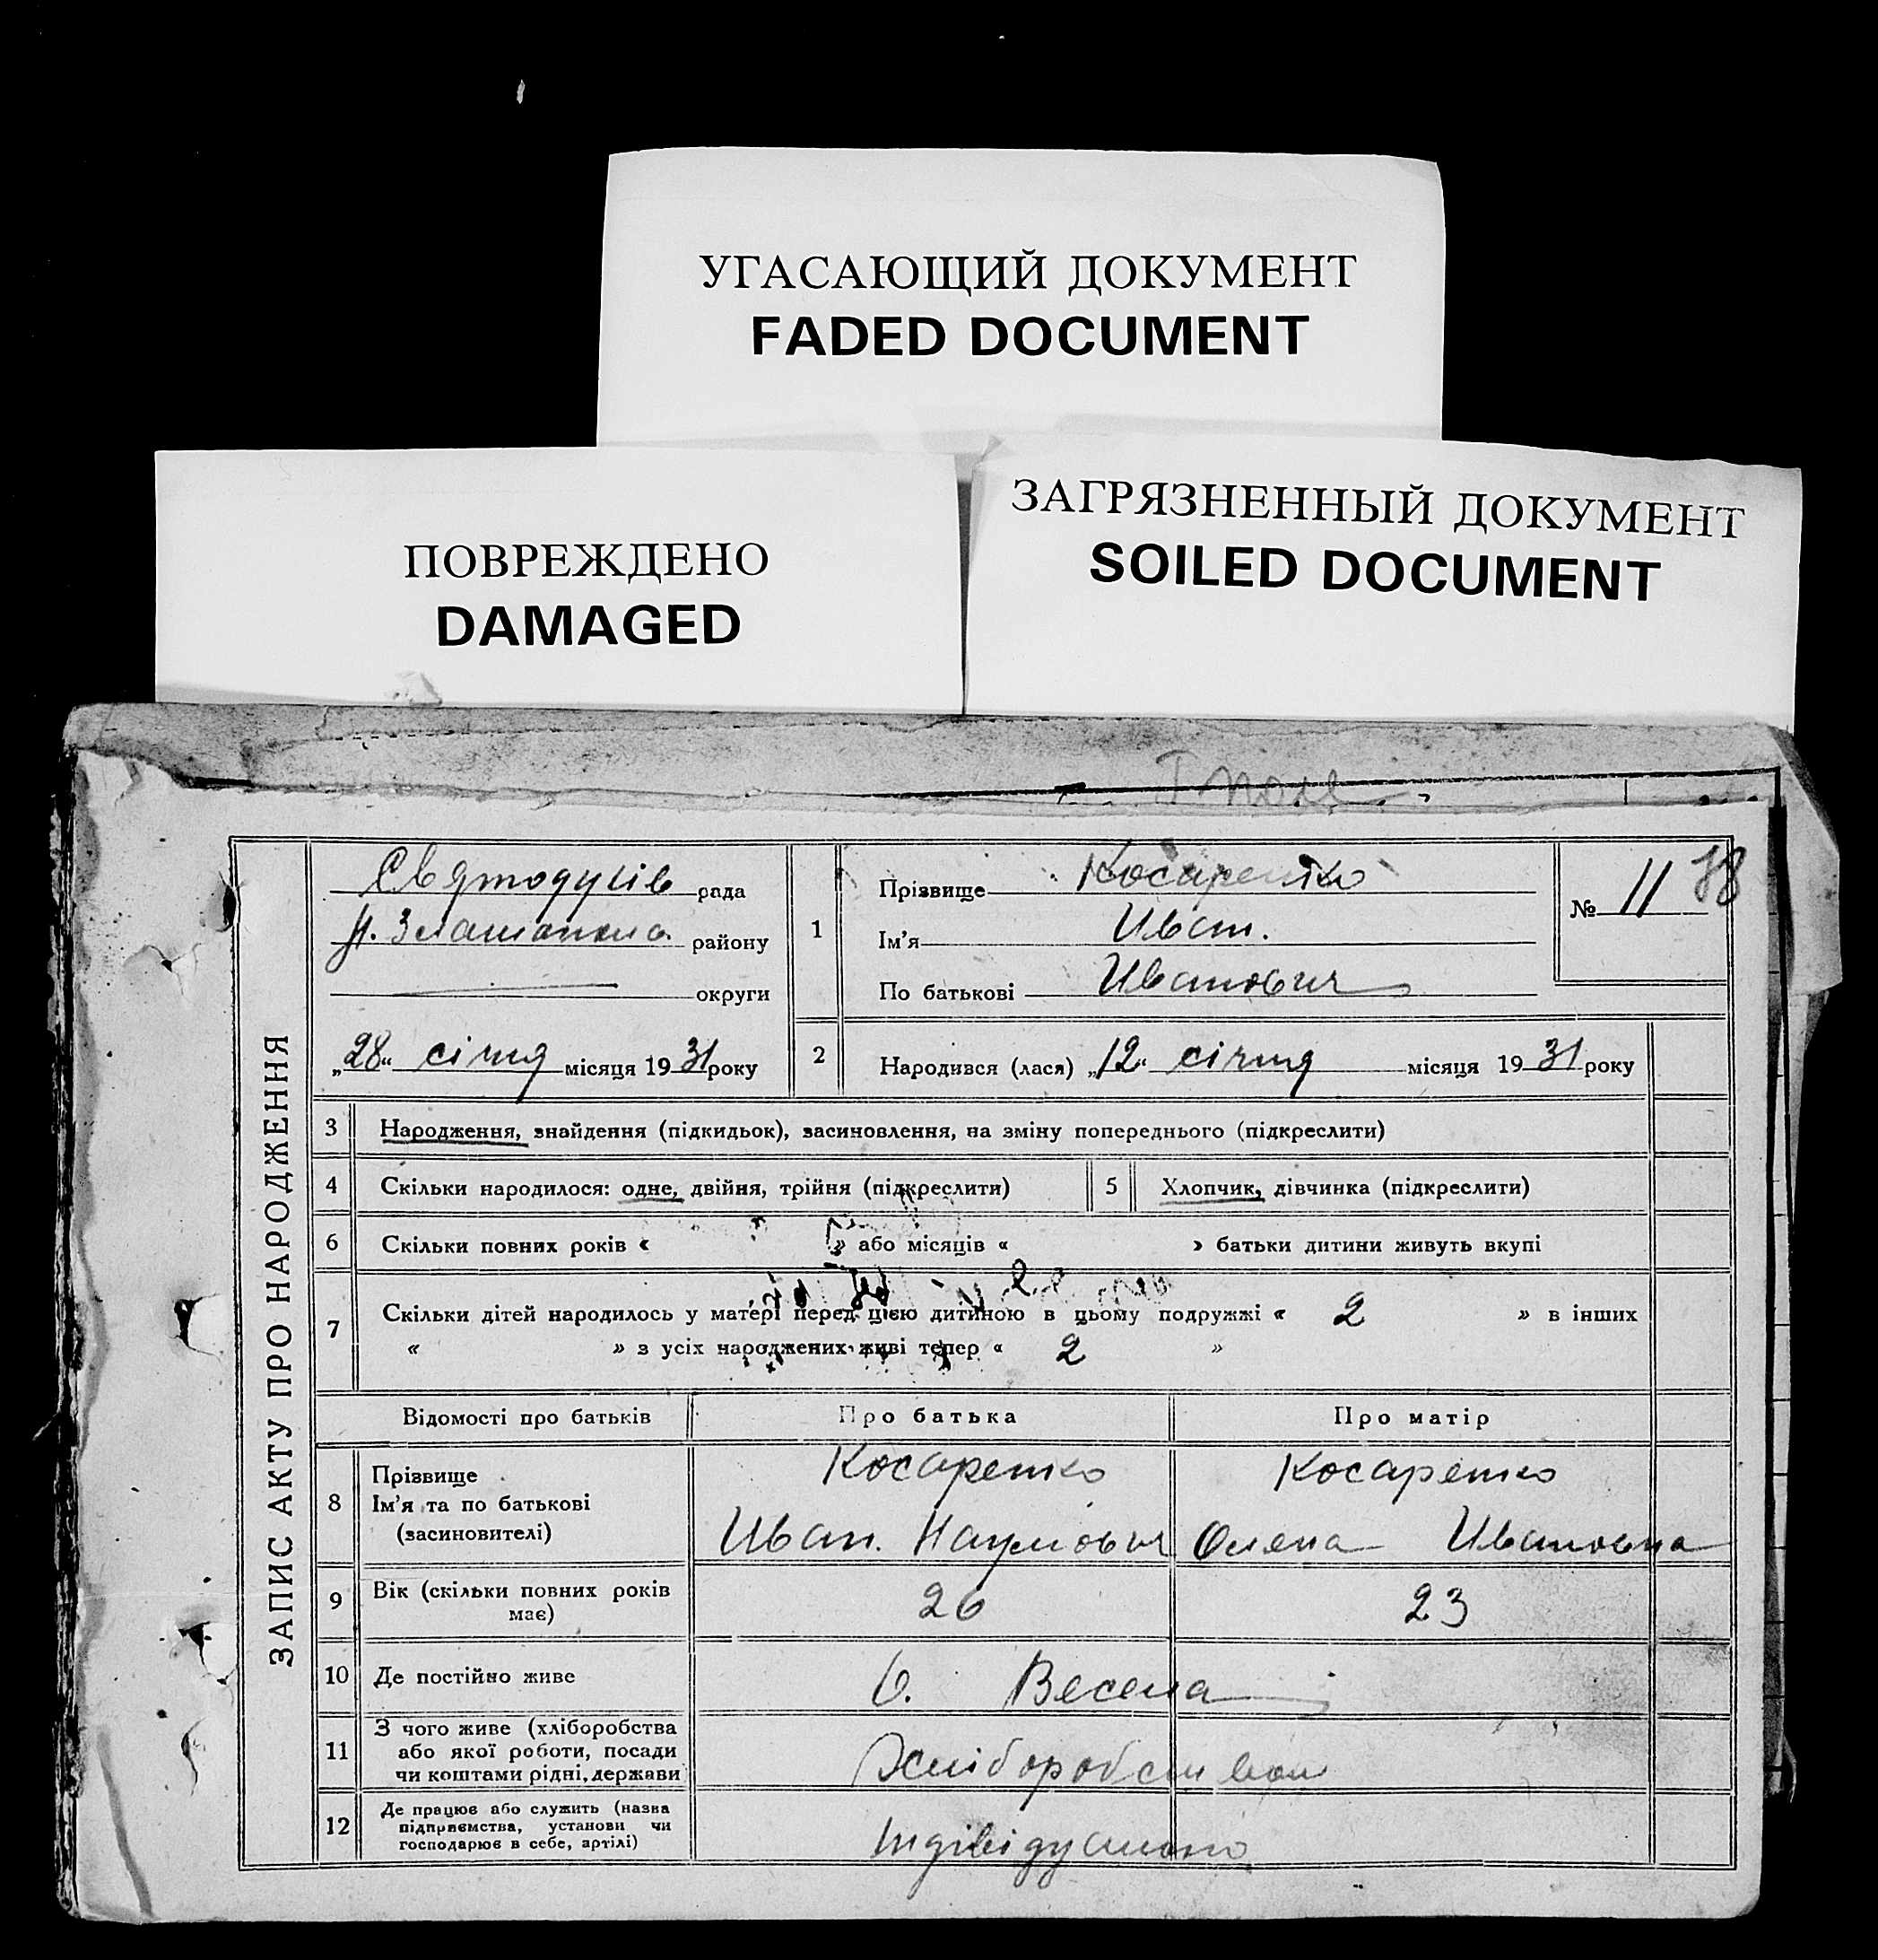 УГАСАЮЩИЙ ДОКУМЕНТ
FADED DOCUMENT
ПОВРЕЖДЕНО
DAMAGED
ЗАГРЯЗНЕННЫЙ ДОКУМЕНТ
SOILED DOCUMENT
ЗАПИС АКТУ ПРО НАРОДЖЕННЯ
Святодухів рада
району
округи
„28“ січня місяця 1931 року
1
Прізвище Косаренко
Ім'я Иван.
По батькові Иванович
№ 11
2
Народився (лася) „12“ січня місяця 1931 року
3 Народження, знайдення (підкидьок), засиновлення, на зміну попереднього (підкреслити)
4 Скільки народилося: одне, двійня, трійня (підкреслити) 5 Хлопчик, дівчинка (підкреслити)
6 Скільки повних років « » або місяців « » батьки дитини живуть вкупі
7 Скільки дітей народилось у матері перед цією дитиною в цьому подружжі « 2 » в інших
« » з усіх народжених живі тепер « 2 »
Відомості про батьків Про батька Про матір
8 Прізвище Косаренко Косаренко
Ім'я та по батькові
(засиновителі) Иван. Наумович Олена Ивановна
9 Вік (скільки повних років має) 26 23
10 Де постійно живе Весела
11 З чого живе (хліборобства
або якої роботи, посади
чи коштами рідні, держави Хліборобством
12 Де працює або служить (назва
підприємства, установи чи
господарює в себе, артілі) Індівідуально